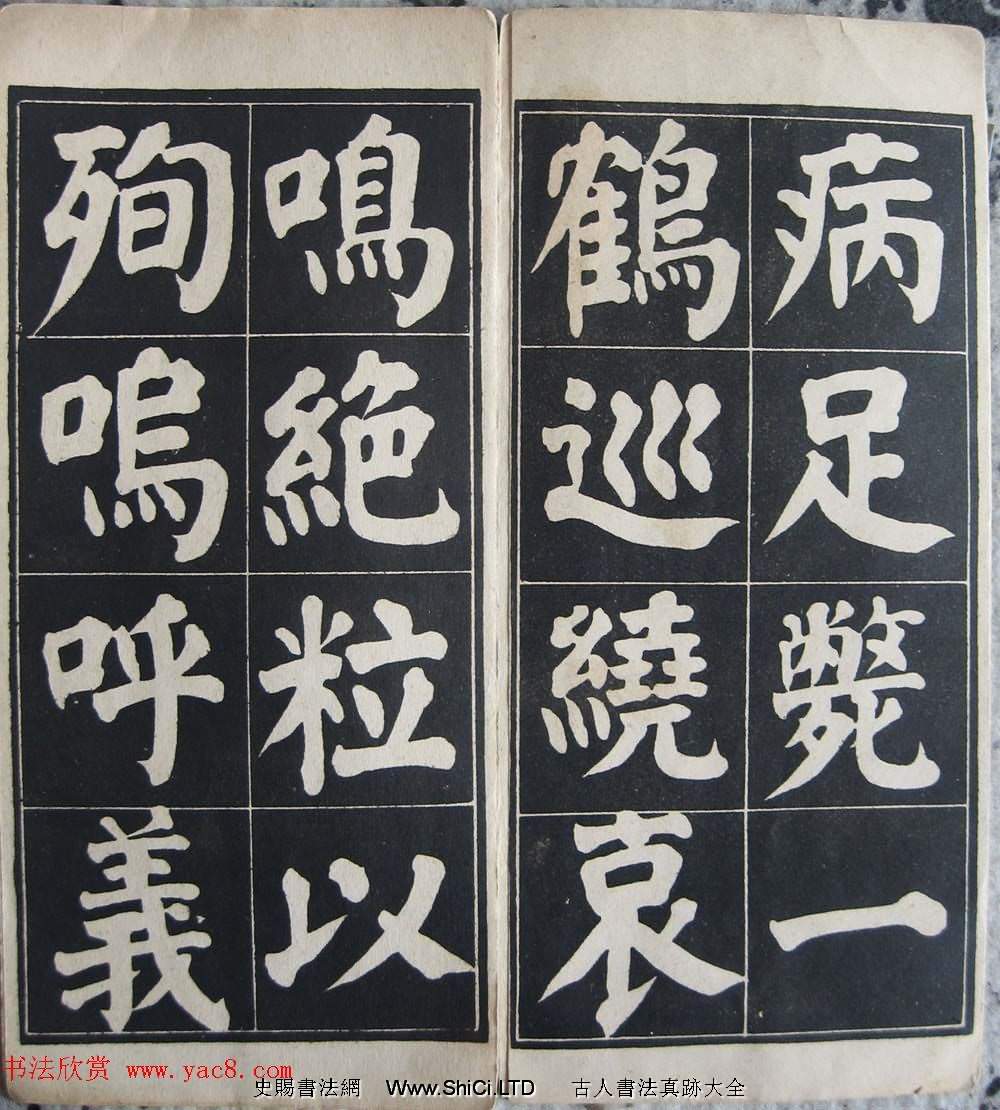 病足斃一
鶴巡繞哀
鳴絶粒以
殉嗚呼義
书法欣赏 www.yac8.com
史賜書法網 Www.ShiCi.LTD 古人書法真跡大全